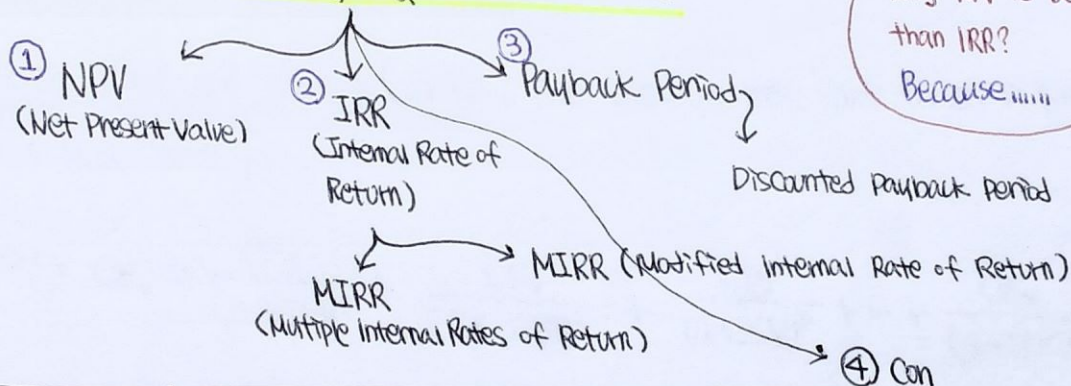 than IRR?
Because......
① NPV
(Net Present Value)
② IRR
(Internal Rate of
Return)
③ Payback Period
Discounted Payback Period
MIRR
(Multiple Internal Rates of Return)
MIRR (Modified Internal Rate of Return)
④ Con